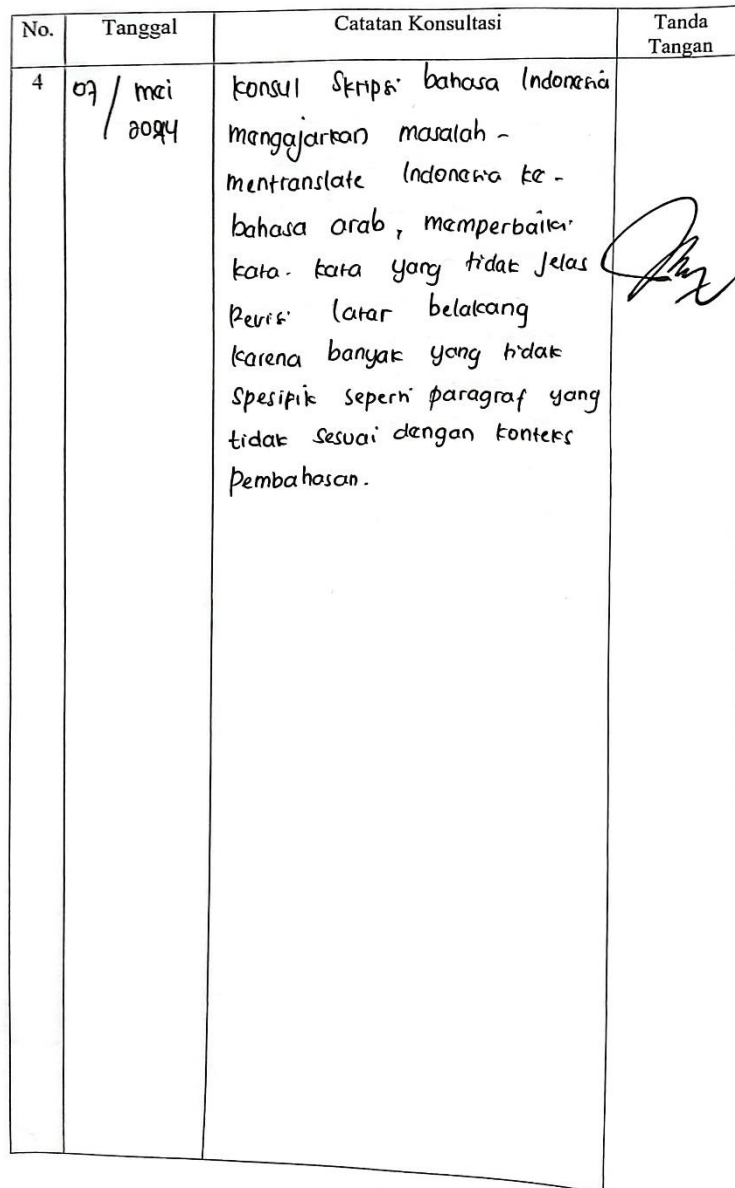 No. Tanggal Catatan Konsultasi Tanda
Tangan
4 07 / mei konsul Skripsi bahasa Indonesia
2024 mengajarkan masalah -
mentranslate Indonesia ke -
bahasa arab, memperbaiki
kata - kata yang tidak Jelas
Revisi latar belakang
karena banyak yang tidak
Spesipik seperti paragraf yang
tidak sesuai dengan konteks
pembahasan.